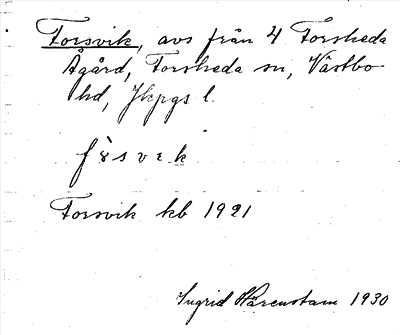 Forsvik, avs från 4 Forsheda
Ågård, Forsheda sn, Västbo
hd, Jkpgs l.
fɔ̀svɪk
Forsvik kb 1921
Ingrid Härenstam 1930